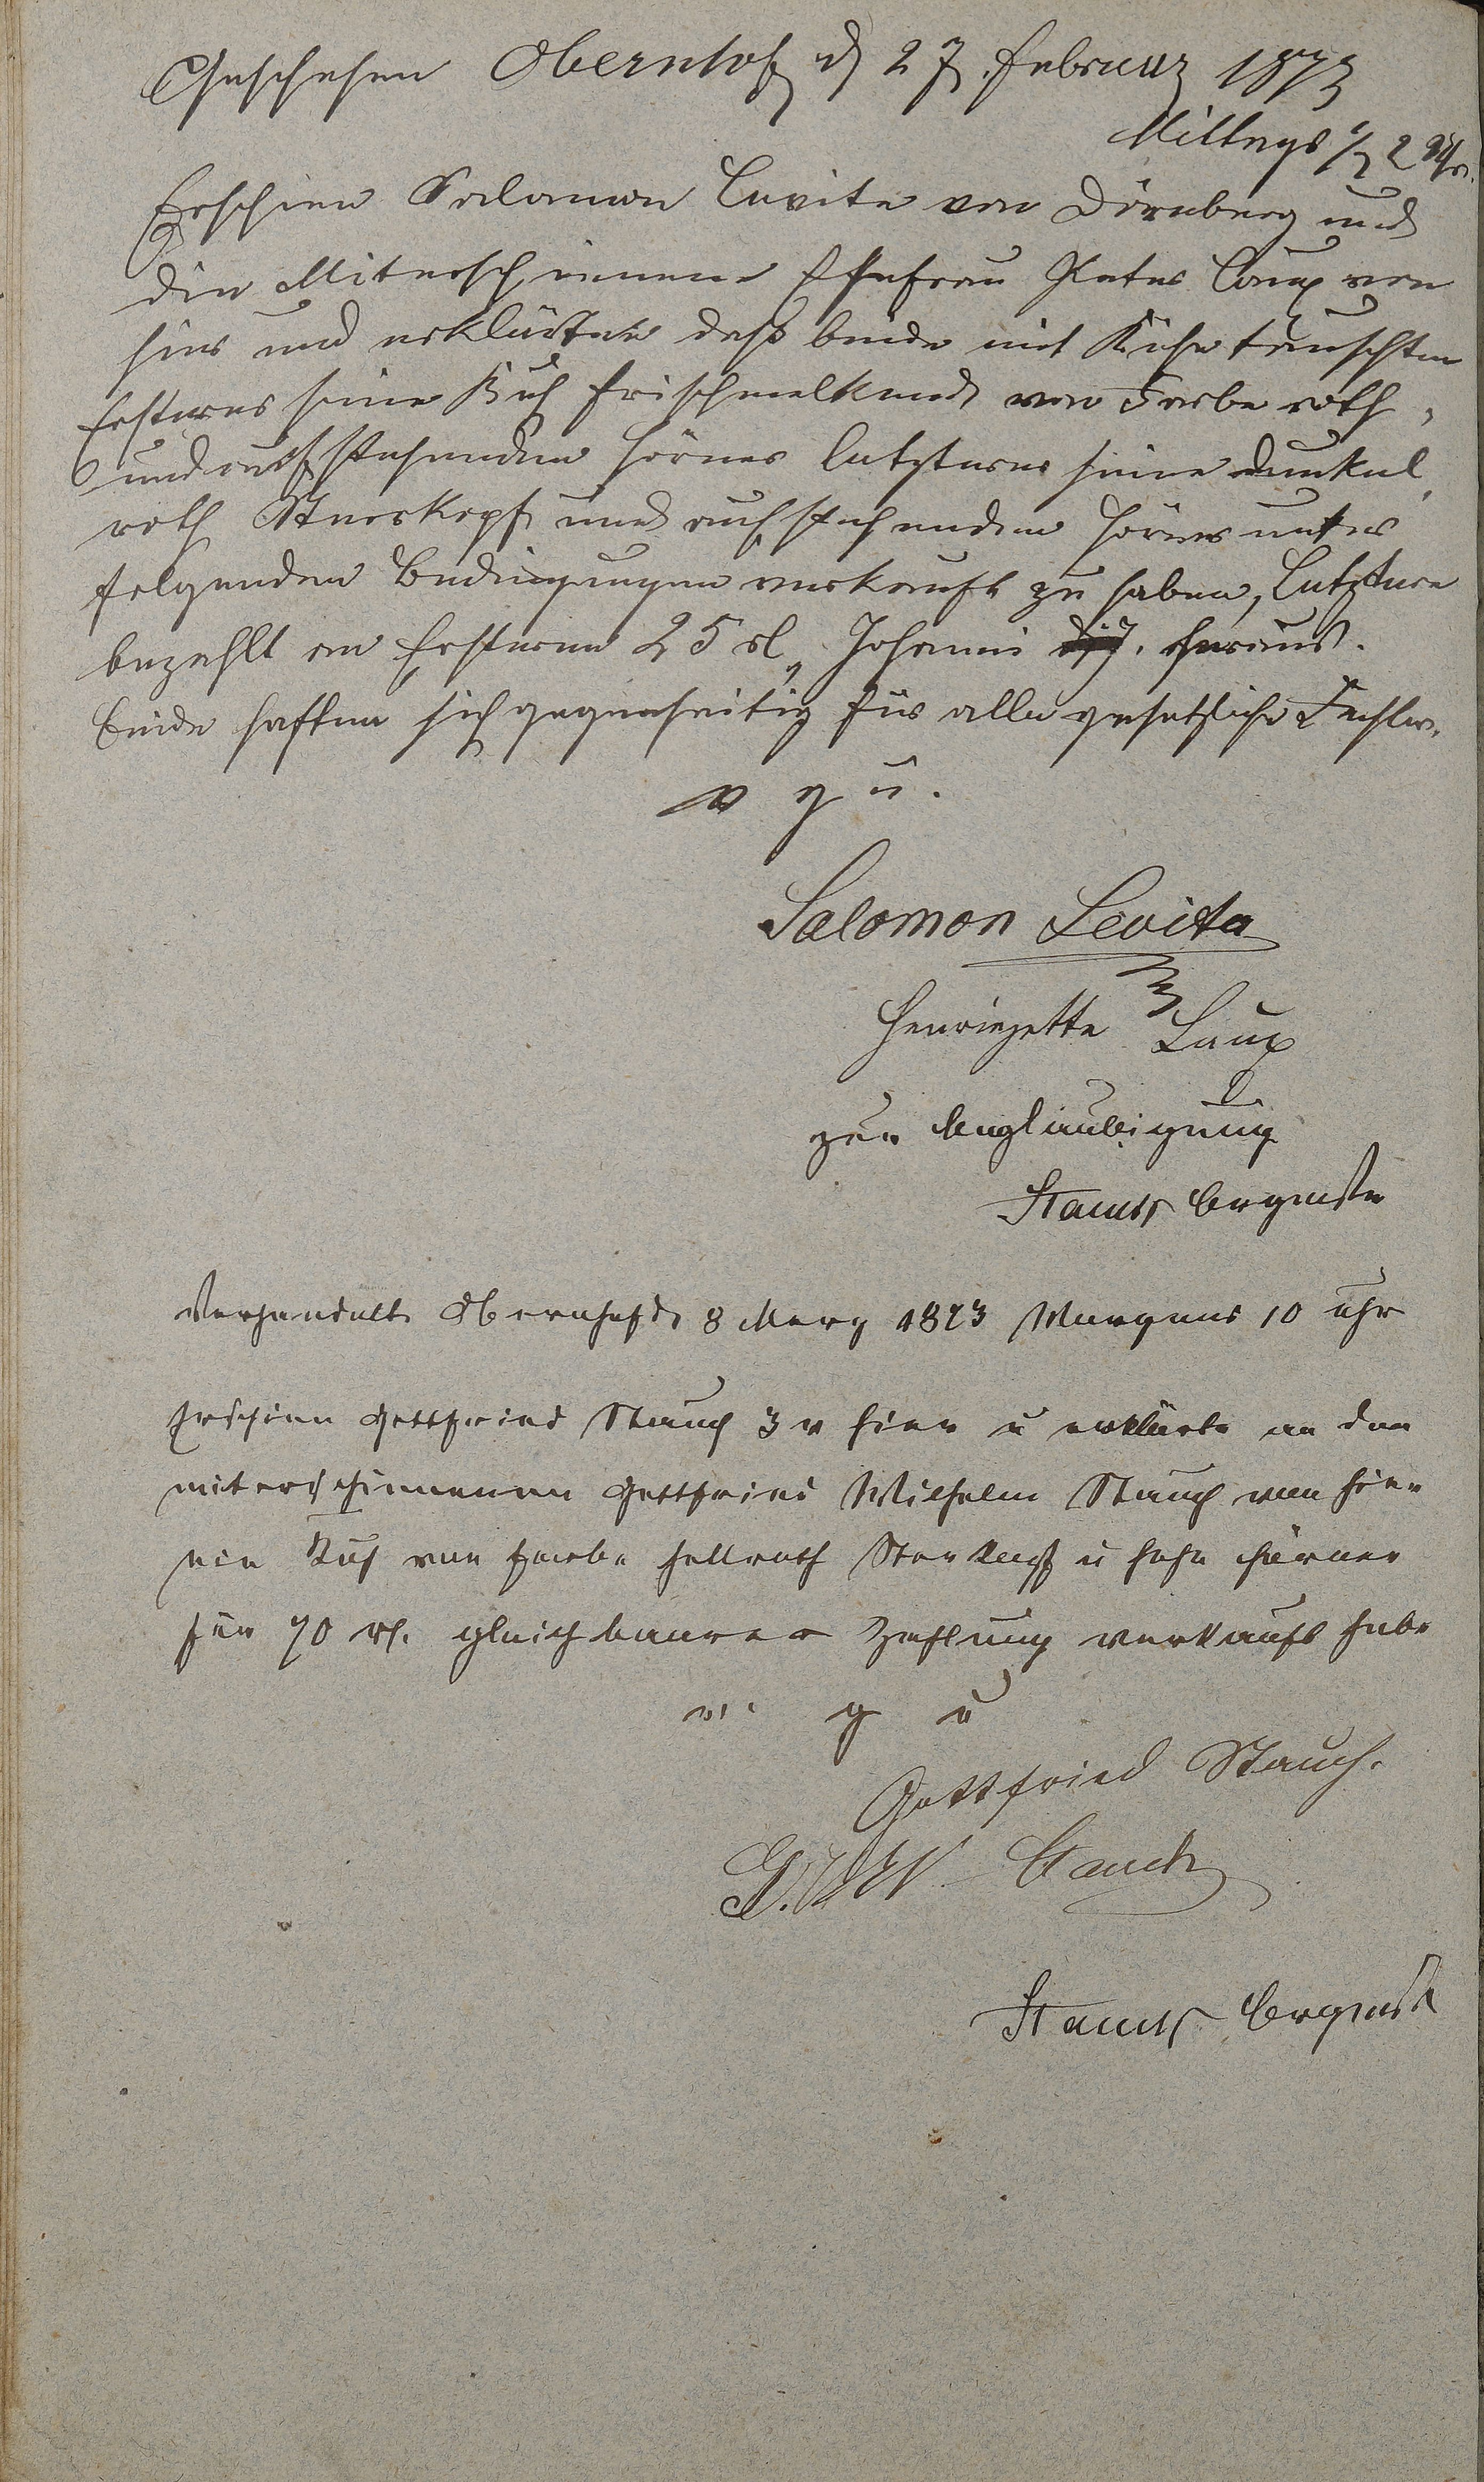 Geschehen Obernhof d 27. Februar 1873
Mittags ½ 2 Uhr.
Erschien Salamon Levita von Dörnberg und
die Miterschienene Ehefrau Peter Laux von
hier und erklärten daß beide mit Kühe tauschten
Ersterer seine Kuh frischmelkend von Farbe roth,
und rechstehenden Hörner letzterer seine dunkel
roth Sternkopf und rechstehenden Hörner unter
folgenden Bedingungen verkauft zu haben, Letztere
bezahlt an Ersteren 25 rl, Johanni heraus.
Beide haften sich gegenseitig für alle gesetzliche Fehler.
v g u.
Salomon Levita
Henriegette Laux
zur Beglaubigung
Brgmstr
Verhandelt Obernhof d 8 Merz 1873 Morgens 10 Uhr
Erschien Gottfried Stauch 3 v hier u erklärte an den
miterschienenen Gottfried Wilhelm Stauch von hier
ein Kuh von Farbe hellroth Sternkopf u hohe Hörner
für 70 rl. gleich baarer Zahlung verkauft habe
v. g u
Gottfried Stauch.
G. W Stauch
Brgmstr